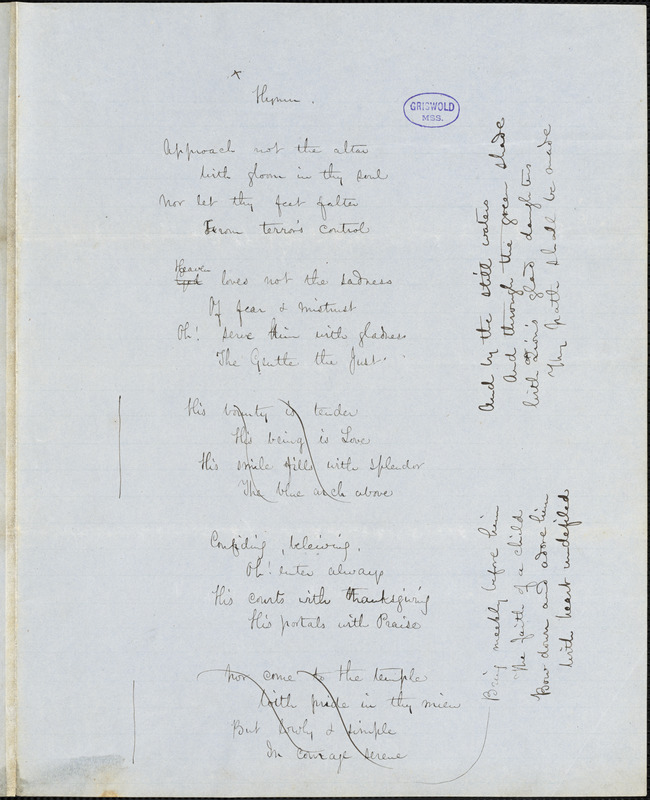 x
Hymn.
GRISWOLD
MSS.
Approach not the altar
With gloom in thy soul
Nor let thy feet falter
From terror's control
Heaven
God loves not the sadness
Of fear & mistrust
Oh! serve him with gladness
The Gentle the Just.
His bounty is tender
His being is Love
His smile fills with splendor
The blue arch above
Confiding, beleiving.
Oh! enter always
His courts with thanksgiving
His portals with Praise
Nor come to the temple
With pride in thy mien
But lowly & simple
In courage serene
Bring meekly before him
The faith of a child
Bow down and adore him
With heart undefiled
And by the still waters
And through the green shade
With Zion's glad daughters
Thy path shall be made